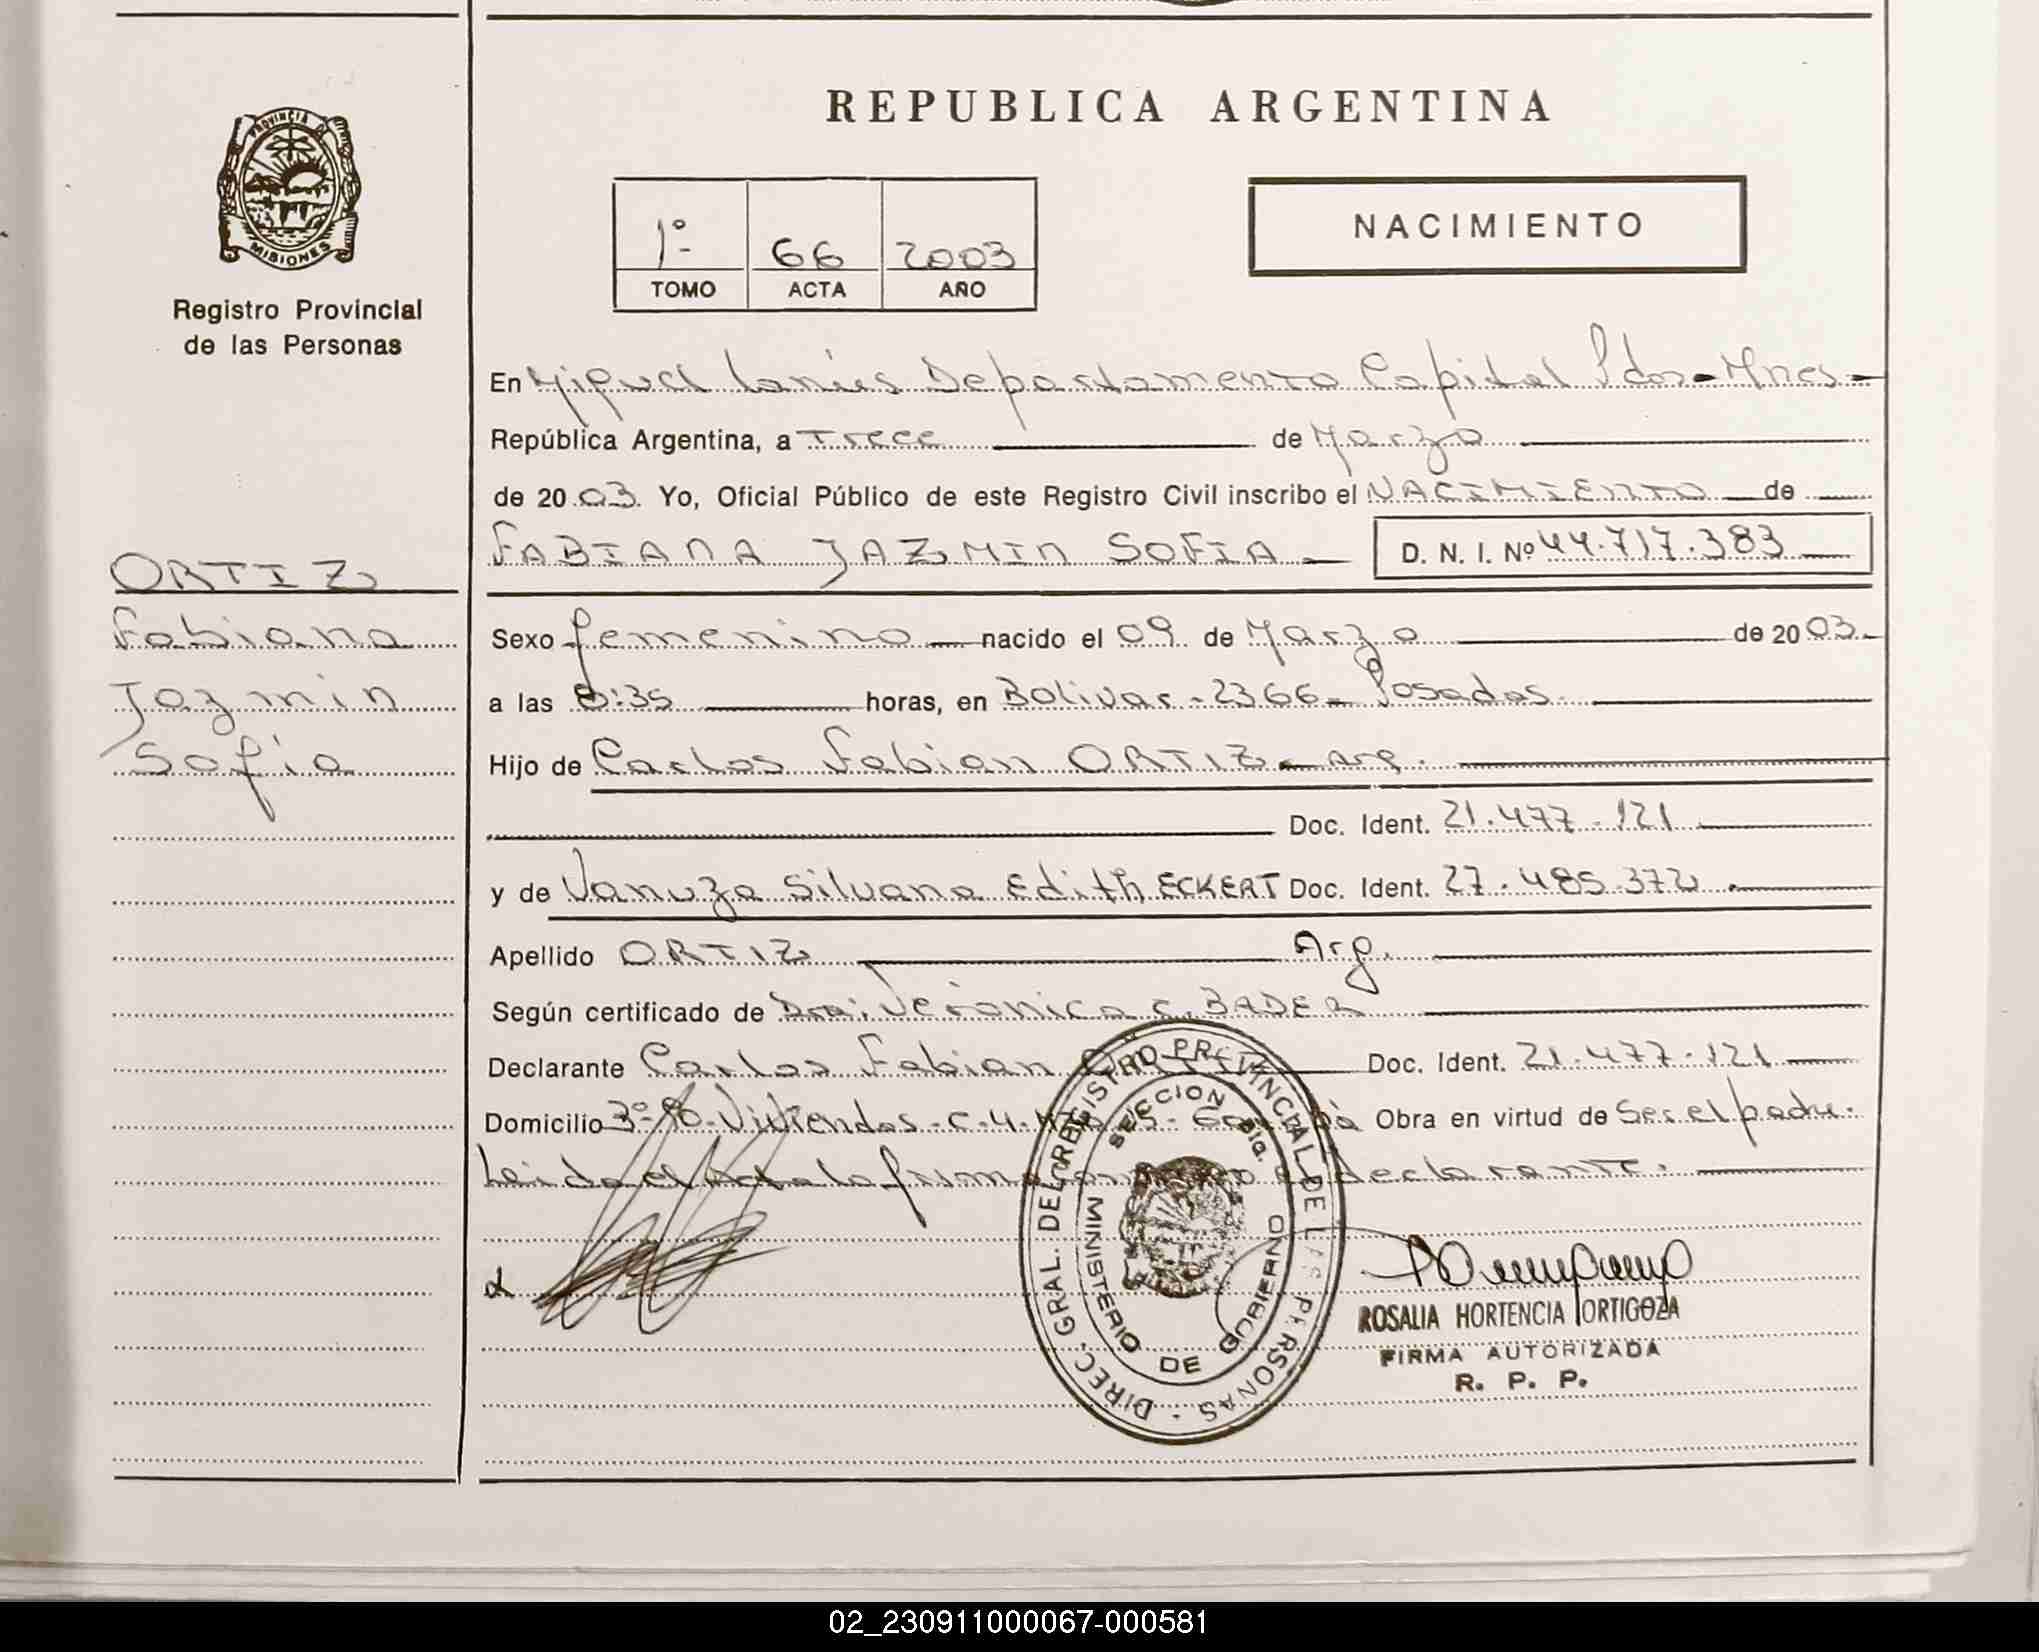 PROVINCIA DE
MISIONES
Registro Provincial
de las Personas
ORTIZ
Fabiana
Jazmin
Sofia
REPUBLICA ARGENTINA
1º 66 2003
TOMO ACTA AÑO
NACIMIENTO
En Miguel Lanús Departamento Capital Pdas - Mnes -
República Argentina, a Trece de Marzo
de 2003. Yo, Oficial Público de este Registro Civil inscribo el NACIMIENTO de
FABIANA JAZMIN SOFIA D. N. I. Nº 44.717.383
Sexo femenino nacido el 09 de Marzo de 2003.
a las 8:35 horas, en Bolivar - 2366 - Posadas
Hijo de Carlos Fabian ORTIZ - Arg.
Doc. Ident. 21.477.121
y de Vanuza Silvana Edith ECKERT Doc. Ident. 27.485.372
Apellido ORTIZ Arg.
Según certificado de Dra: Veronica C. BADER
Declarante Carlos Fabian Doc. Ident. 21.477.121
Domicilio Viviendas - C. 4. Obra en virtud de Ser el padre.
Leida el Acta la firma declarante.
DIREC. GRAL. DEL REGISTRO PROVINCIAL DE LAS PERSONAS
SECCION
MINISTERIO DE GOBIERNO
ROSALIA HORTENCIA ORTIGOZA
FIRMA AUTORIZADA
R. P. P.
02_230911000067-000581